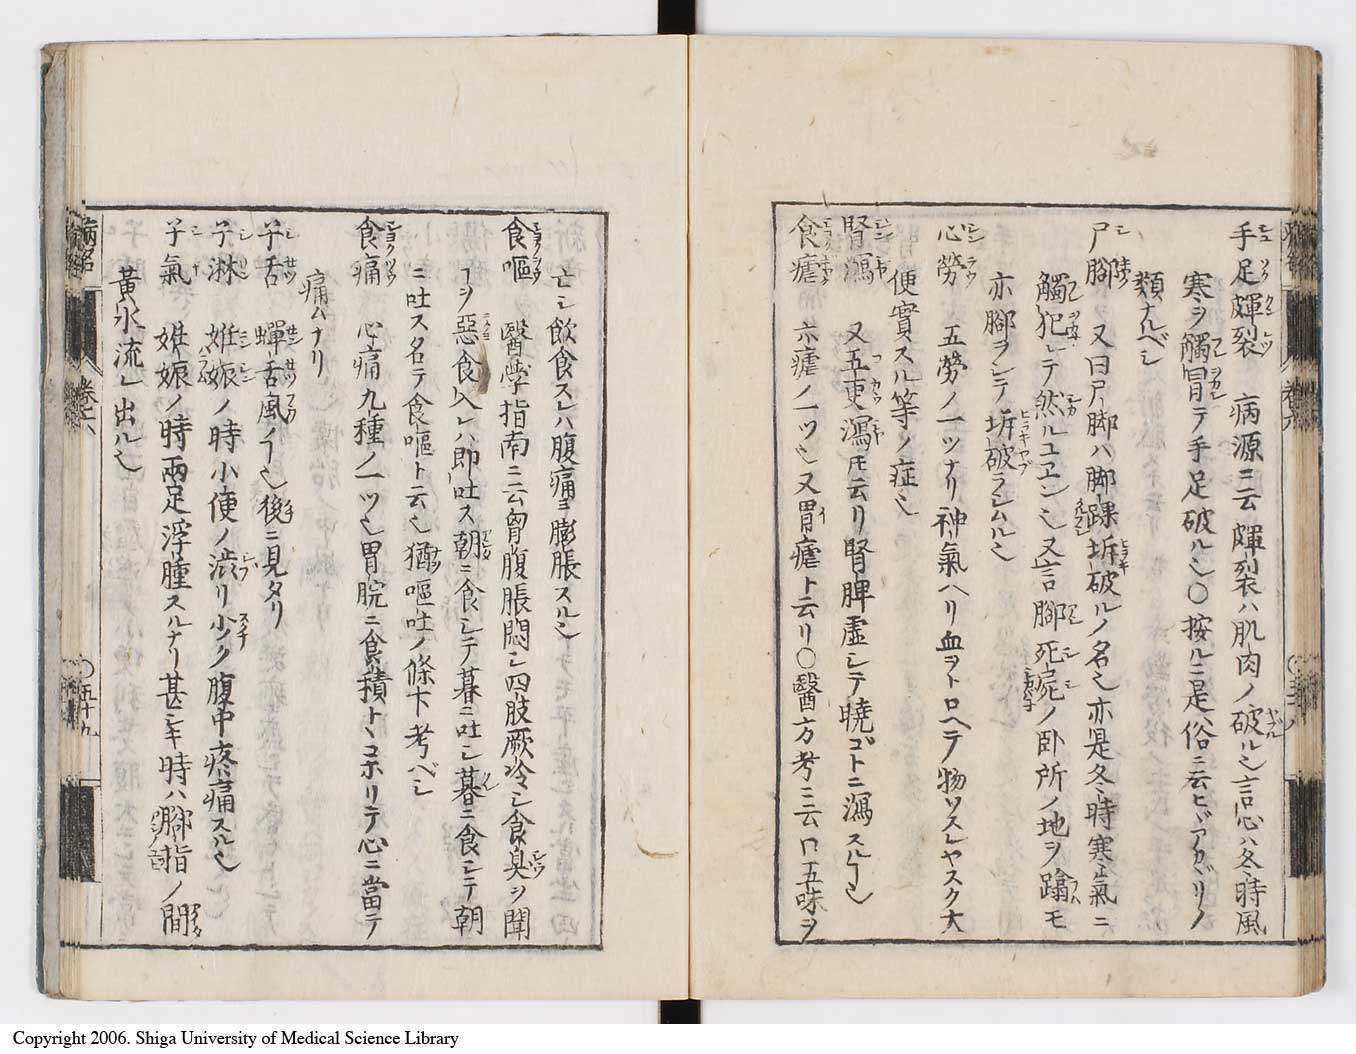 手足皹裂 病源ニ云皹裂ハ肌肉ノ破ルヽ也言心ハ冬時風
寒ヲ觸冒テ手足破ル也〇按ルニ是俗ニ云ヒヾアカヾリノ
類ナルベシ
尸脚 又曰尸脚ハ脚踝坼破ルノ名也亦是冬時寒氣ニ
觸犯レテ然ルユヱン也又言脚死屍ノ卧所ノ地ヲ踏モ
亦脚ヲシテ坼破ラシムル也
心勞 五勞ノ一ツナリ神氣ヘリ血ヲトロヘテ物ワスレヤスク大
便實スル等ノ症也
腎瀉 又五更瀉トモ云リ腎脾虛シテ曉ゴトニ瀉スル也
食瘧 六瘧ノ一ツ也又胃瘧ト云リ〇醫方考ニ云口五味ヲ
亡シ飲食スレハ腹痛ヨ膨脹スル也
食嘔 醫學指南ニ云胷腹脹悶シ四肢厥冷シ食臭ヲ聞
ヿヲ惡食入レハ即吐ス朝ニ食シテ暮ニ吐シ暮ニ食シテ朝
ニ吐ス名テ食嘔ト云也猶嘔吐ノ條下考ベシ
食痛 心痛九種ノ一ツ也胃脘ニ食積トヽコホリテ心ニ當テ
痛ムナリ
子舌 蟬舌風ノヿ也後ニ見タリ
子淋 姙娠ノ時小便ノ澁リ少ク腹中疼痛スル也
子氣 姙娠ノ時兩足浮腫スルナリ甚シキ時ハ脚指ノ間
黃水流レ出ル也
病名 卷六 〇五十九
Copyright 2006. Shiga University of Medical Science Library